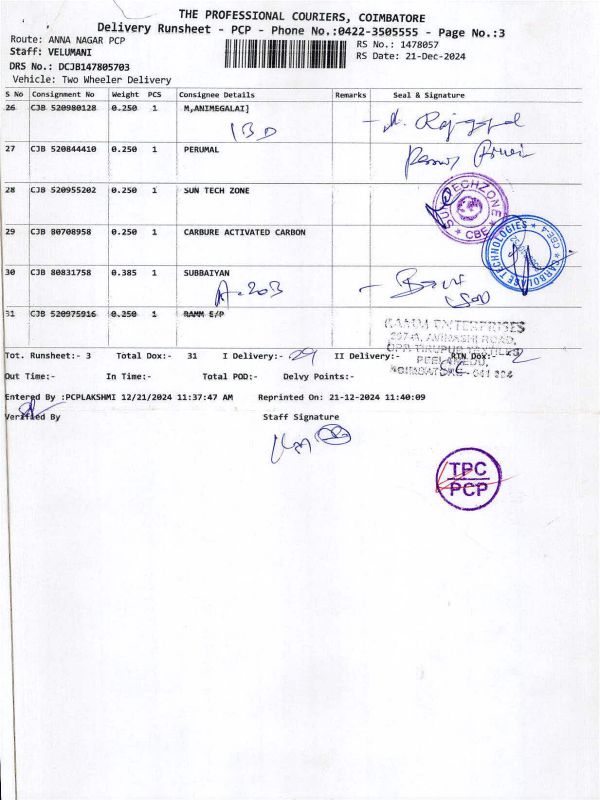 THE PROFESSIONAL COURIERS, COIMBATORE
Delivery Runsheet - PCP - Phone No.:0422-3505555 - Page No.:3
Route: ANNA NAGAR PCP
RS No.: 1478057
Staff: VELUMANI
RS Date: 21-Dec-2024
DRS No.: DCJB147805703
Vehicle: Two Wheeler Delivery
S No Consignment No Weight PCS Consignee Details Remarks Seal & Signature
26 CJB 520980128 0.250 1 M,ANIMEGALAI]
27 CJB 520844410 0.250 1 PERUMAL
28 CJB 520955202 0.250 1 SUN TECH ZONE
SUN TECHZONE
* CBE *
29 CJB 80708958 0.250 1 CARBURE ACTIVATED CARBON
CARBOLAGE TECHNOLOGIES * CBE-4 *
30 CJB 80831758 0.385 1 SUBBAIYAN
A-203
31 CJB 520975916 0.250 1 RAMM E/P
RAMM ENTERPRISES
AVINASHI ROAD,
PEELAMEDU,
Tot. Runsheet:- 3 Total Dox:- 31 I Delivery:- 29 II Delivery:- RTN Dox:- 2
Out Time:- In Time:- Total POD:- Delvy Points:-
Entered By :PCPLAKSHMI 12/21/2024 11:37:47 AM Reprinted On: 21-12-2024 11:40:09
Verified By Staff Signature
TPC
PCP